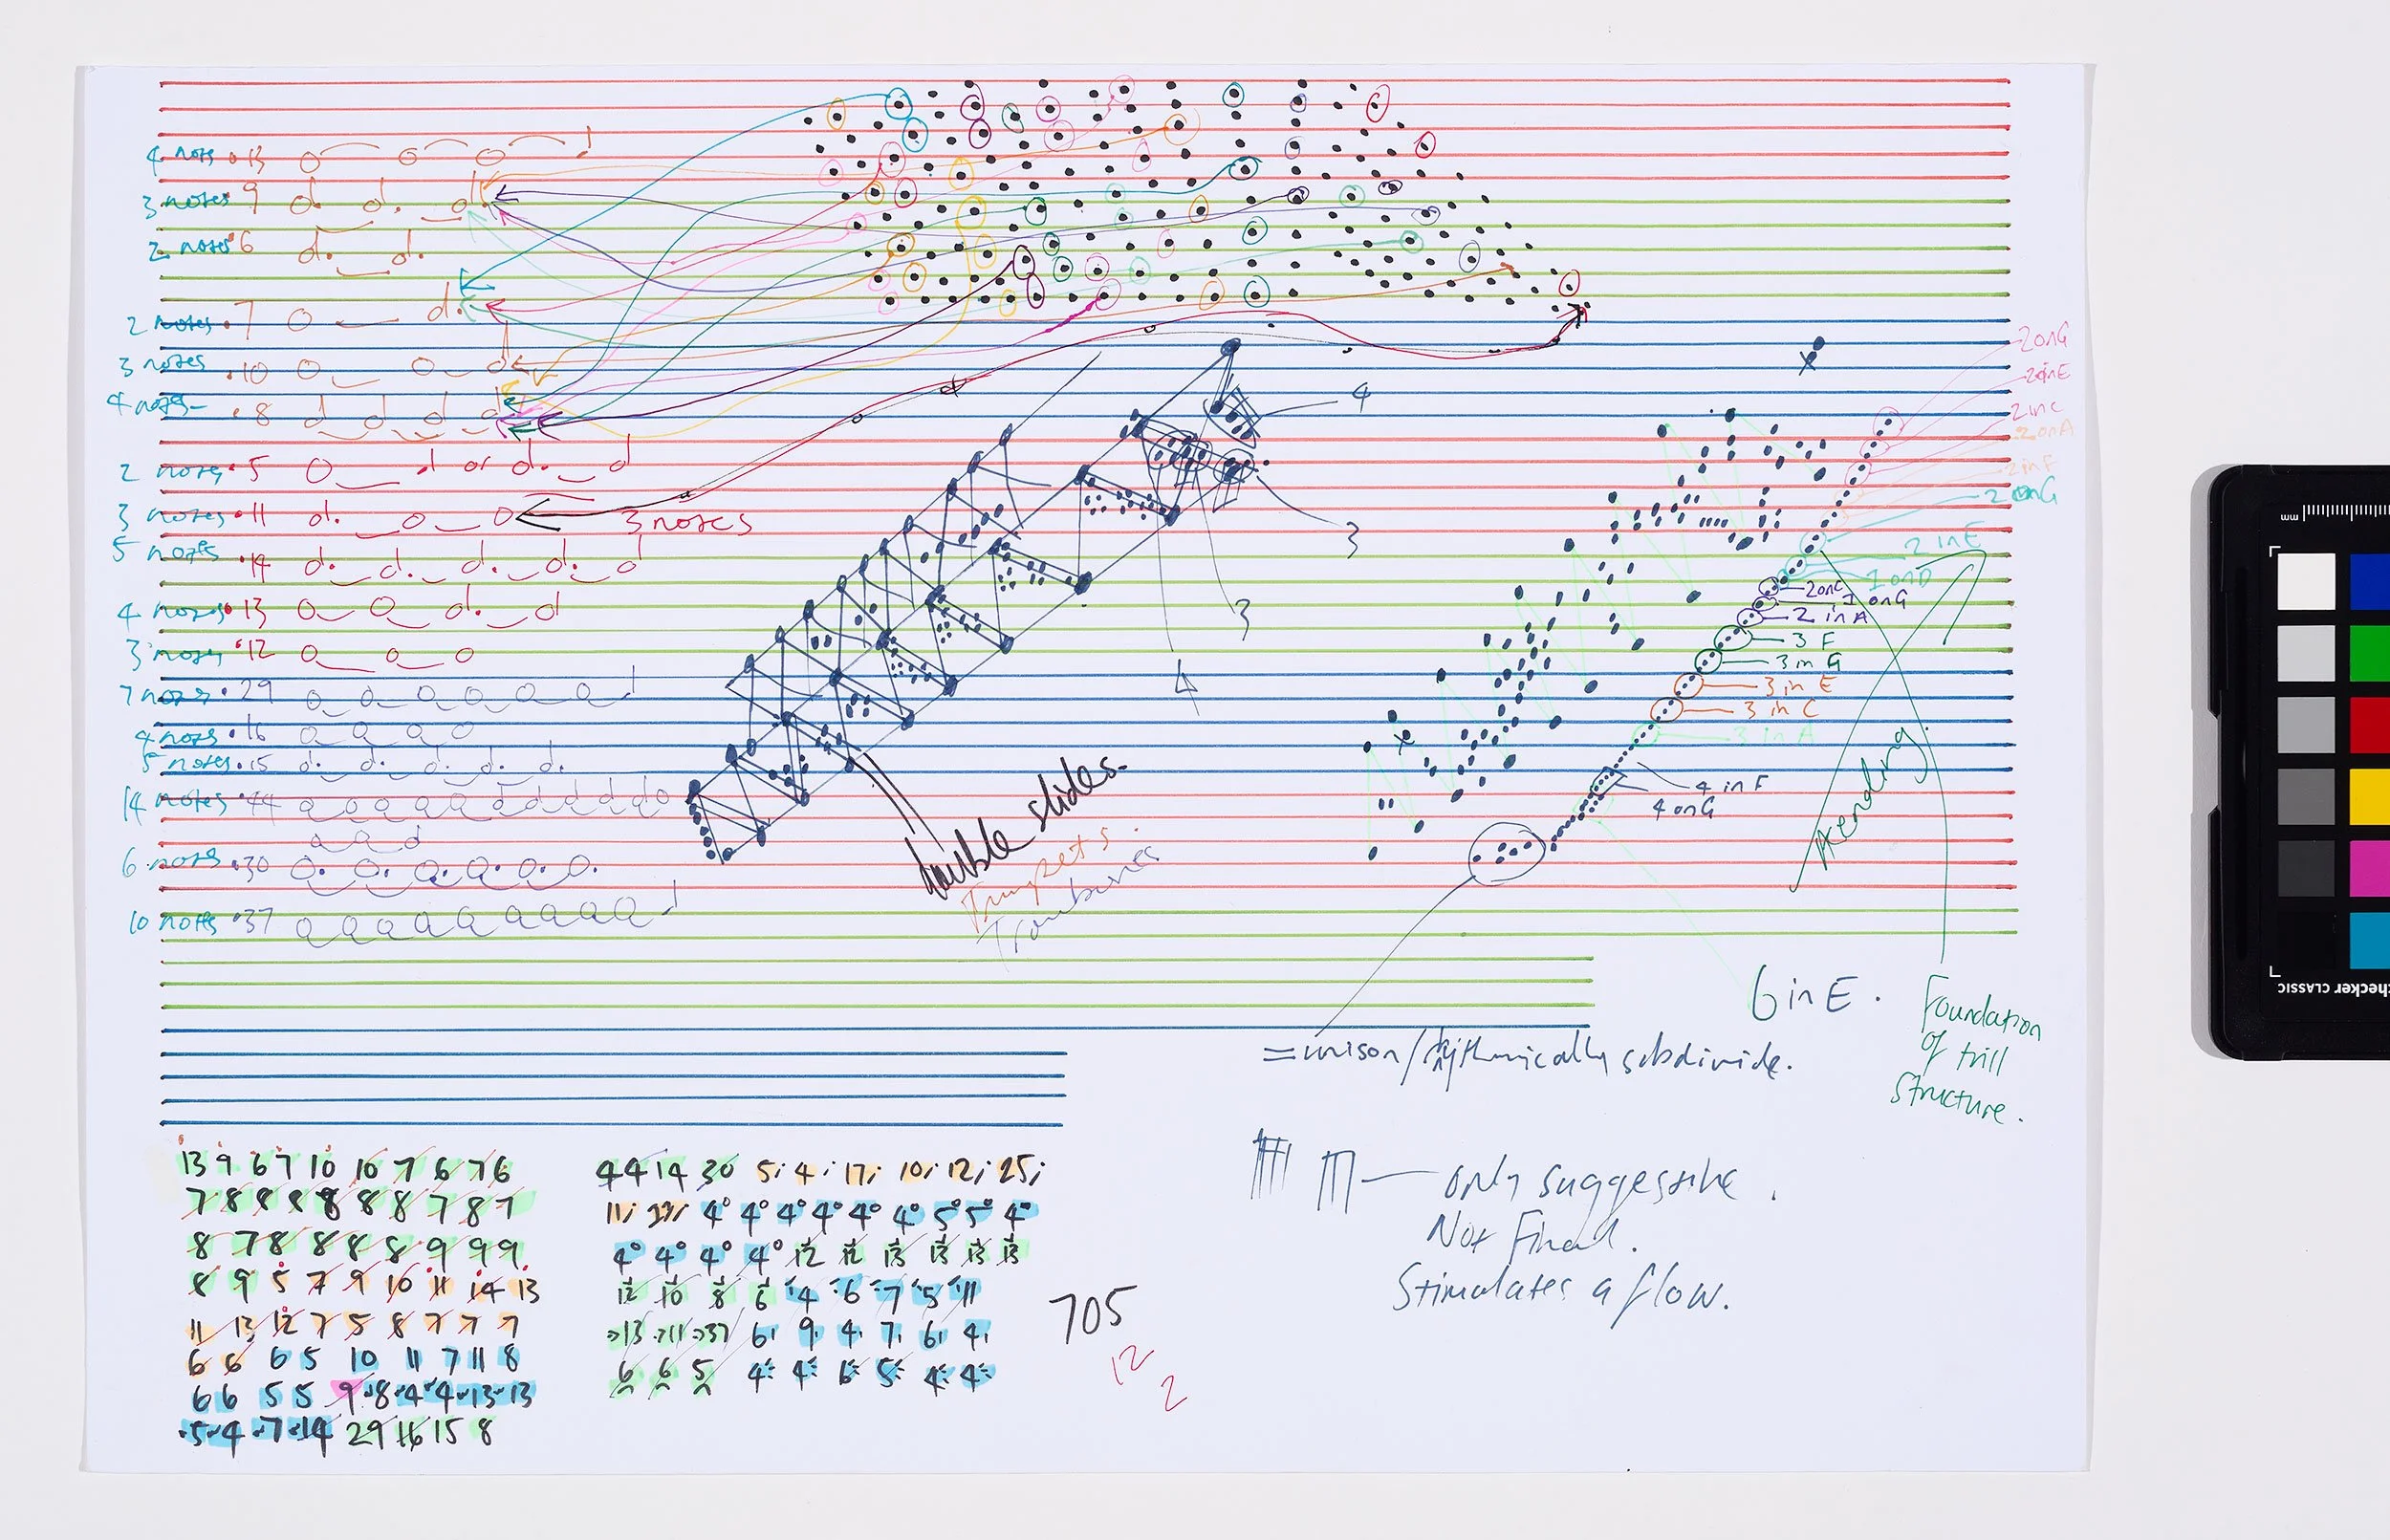 4 notes • 13
3 notes • 9
2 notes • 6
2 notes • 7
3 notes • 10
4 notes - • 8
2 notes • 5 or
3 notes • 11 3 notes
5 notes • 14
4 notes • 13
3 notes • 12
7 notes • 29
4 notes • 16
5 notes • 15
14 notes • 44
6 notes • 30
10 notes • 37
4
3
3
4
double slides.
Trumpets.
Trombones
x
x
2 on G
2 in E
2 in C
2 on A
2 in F
2 on G
2 in E
1 on D
2 on C
1 on G
2 in A
3 F
3 in G
3 in E
3 in C
3 in A
4 in F
4 on G
6 in E.
Foundation
of trill
structure.
only suggestive.
Not Final.
Stimulates a flow.
13 9 6 7 10 10 7 6 7 6
7 8 8 8 8 8 8 7 8 7
8 7 8 8 8 8 9 9 9
8 9 5 7 9 10 11 14 13
11 13 12 7 5 8 7 7 7
6 6 6 5 10 11 7 11 8
6 6 5 5 9 8 4 4 13 13
5 4 7 14 29 16 15 8
44 14 30 5; 4; 17; 10; 12; 25;
4° 4° 4° 4° 4° 4° 5° 5° 4°
4° 4° 4° 4° 12 12 13 13 13 13
12 10 8 6 4 6 7 5 11
13 11 37 6 9 4 7 6 4
6 6 5 4 4 6 5 4 4
705
12
2
mm
checker CLASSIC